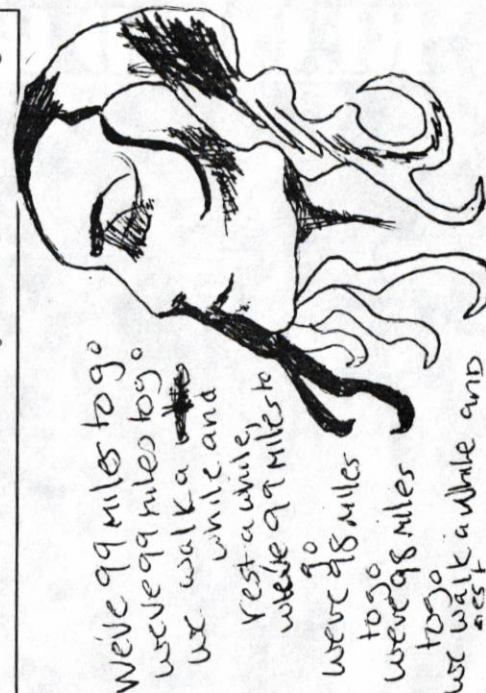 We've 99 Miles to go
we've 99 miles to go
we walk a
while and
rest a while,
we've 99 Miles to
go
we've 98 miles
to go
we've 98 miles
to go
we walk a while and
rest